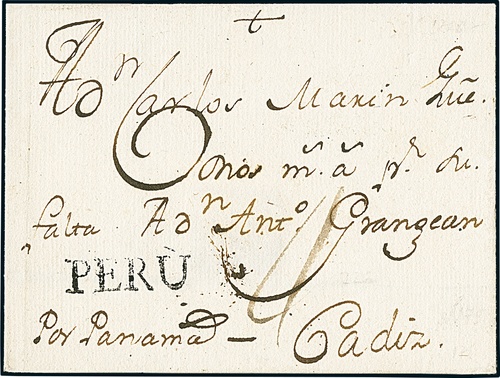 †
A dⁿ Carlos Marin Que.
Dios mˢ aˢ pʳ su
falta A dⁿ Antº. Grangean
PERÙ
Por Panamá – Cadiz.